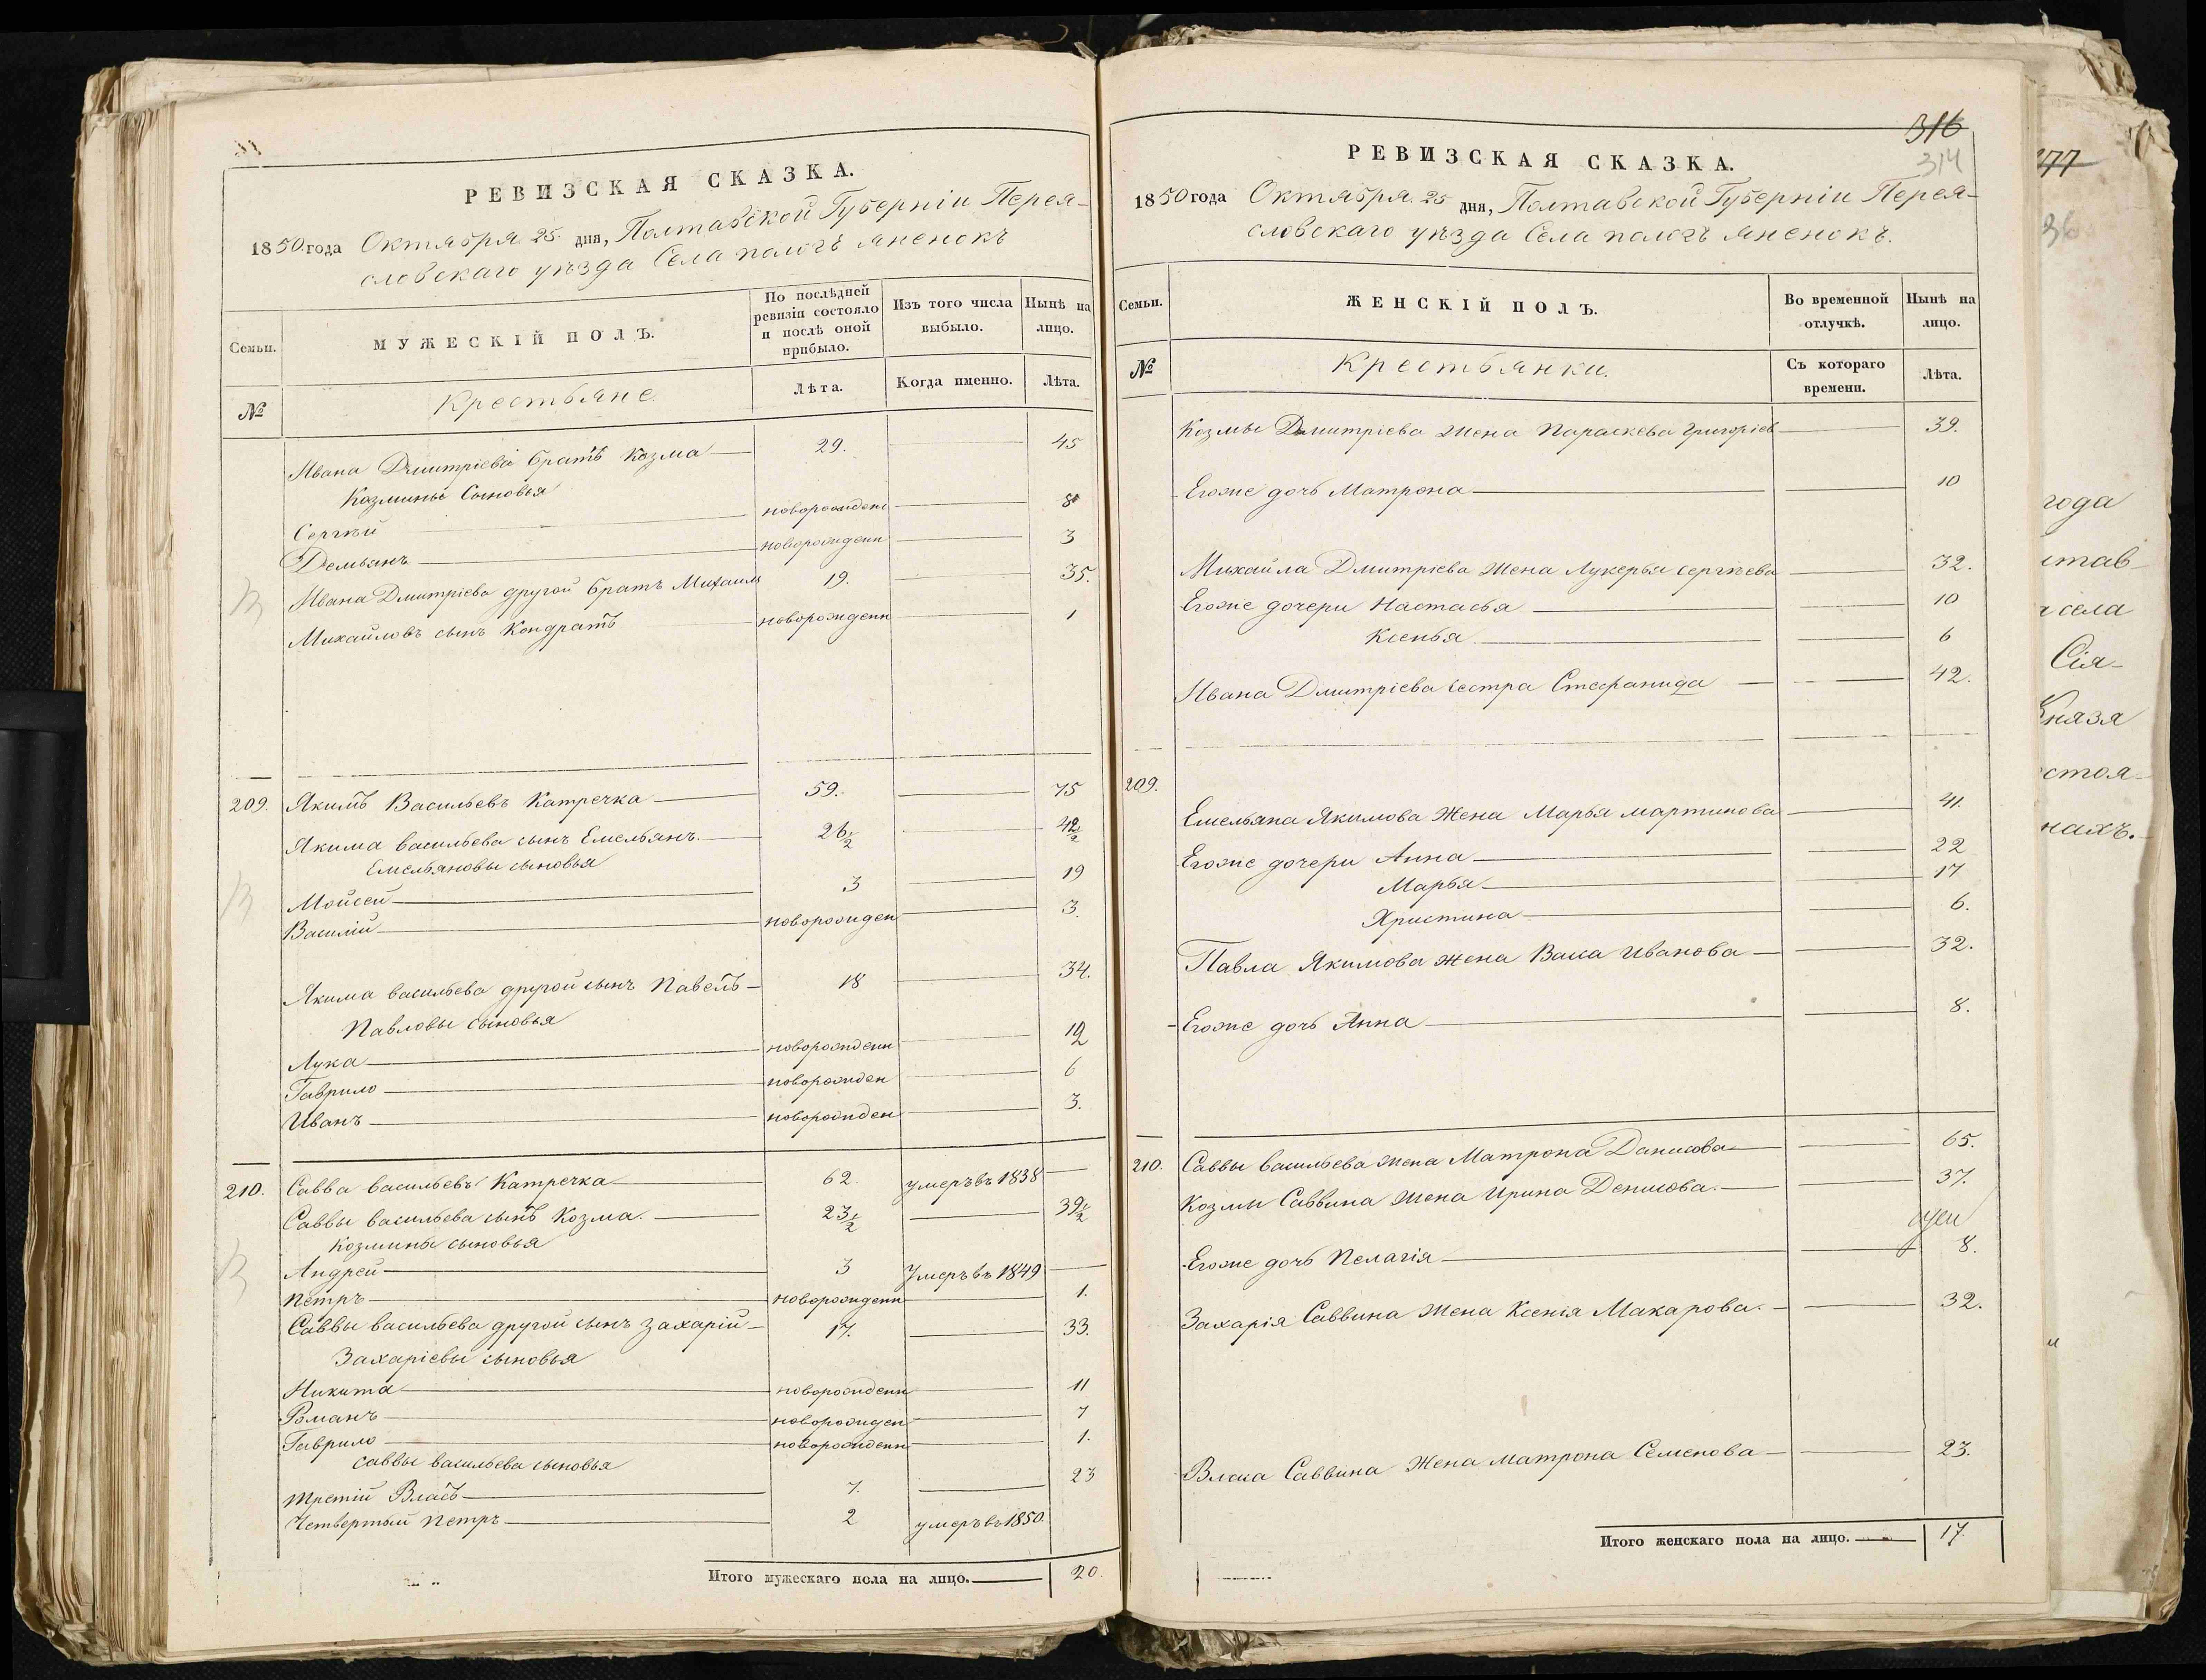 РЕВИЗСКАЯ СКАЗКА.
1850 года Октября 25 дня, Полтавской Губерніи Перея-
словскаго уѣзда Села пологъ яненокъ
Семьи.
МУЖЕСКІЙ ПОЛЪ.
По послѣдней ревизіи состояло и послѣ оной прибыло.
Изъ того числа выбыло.
Нынѣ на лицо.
№
Крестьяне
Лѣта.
Когда именно.
Лѣта.
Ивана Дмитріева братъ Козма 29. 45
Козмины сыновья
Сергѣй новорожден 8
Демьянъ новорожденн 3
Ивана Дмитріева другой братъ Михаилъ 19. 35.
Михайловъ сынъ Кондратъ новорожденн 1
209. Якимъ Васильевъ Катречка 59. 75
Якима васильева сынъ Емельянъ. 26½ 42½
Емельяновы сыновья
Мойсей 3 19
Василій новорожден 3.
Якима васильева другой сынъ Павелъ 18 34.
Павловы сыновья
Лука новорожденн
Гаврило новорожден 6
Иванъ новорожден 3.
210. Савва васильевъ Катречка 62. умеръ въ 1838
Саввы васильева сынъ Козма. 23½ 39½
Козмины сыновья
Андрей 3 Умеръ въ 1849
Петръ новорожденн 1.
Саввы васильева другой сынъ Захарій 17. 33.
Захаріевы сыновья
Никита новорожденн 11
Романъ новорожден 7
Гаврило новорожденн 1.
саввы васильева сыновья
третій Власъ 7. 23
Четвертый Петръ 2 умеръ въ 1850.
Итого мужескаго пола на лицо. 20.
316
314
РЕВИЗСКАЯ СКАЗКА.
1850 года Октября 25 дня, Полтавской Губерніи Перея-
словскаго уѣзда Села пологъ яненокъ.
Семьи.
ЖЕНСКІЙ ПОЛЪ.
Во временной отлучкѣ.
Нынѣ на лицо.
№
Крестьянки.
Съ котораго времени.
Лѣта.
Козмы Дмитріева жена Параскева Григоріев 39.
Егоже дочь Матрона 10
Михайла Дмитріева жена Лукерья сергѣева 32.
Егоже дочери Настасья 10
Ксенья 6
Ивана Дмитріева сестра Стефанида 42.
209.
Емельяна Якимова Жена Марья мартинова 41.
Егоже дочери Анна 22
Марья 17
Христина 6.
Павла Якимова жена Васа Иванова 32.
Егоже дочь Анна 8.
210. Саввы васильева жена Матрона Данилова 65.
Козмы Саввина жена Ирина Денисова. 37.
Егоже дочь Пелагія 8.
Захарія Саввина жена Ксенія Макарова. 32.
Власа Саввина Жена матрона Семенова 23.
Итого женскаго пола на лицо. 17.
77
36
года
тав
села
Сія
Князя
стоя
нахъ.